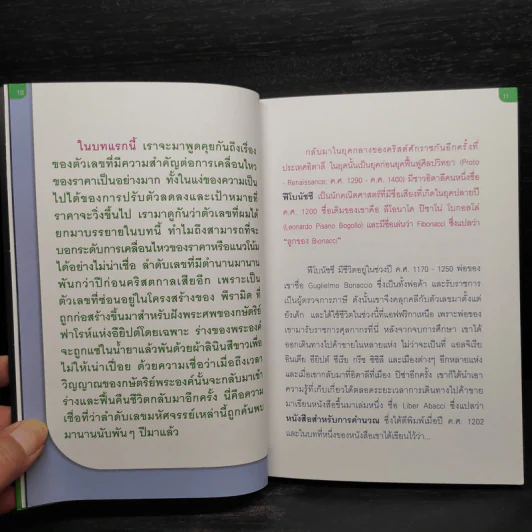 10
ในบทแรกนี้ เราจะมาพูดคุยกันถึงเรื่อง
ของตัวเลขที่มีความสำคัญต่อการเคลื่อนไหว
ของราคาเป็นอย่างมาก ทั้งในแง่ของความเป็น
ไปได้ของการปรับตัวลดลงและเป้าหมายที่
ราคาจะวิ่งขึ้นไป เรามาดูกันว่าตัวเลขที่ผมได้
ยกมาบรรยายในบทนี้ ทำไมถึงสามารถที่จะ
บอกระดับการเคลื่อนไหวของราคาหรือแนวโน้ม
ได้อย่างไม่น่าเชื่อ ลำดับเลขที่มีตำนานมานาน
พันกว่าปีก่อนคริสตกาลเสียอีก เพราะเป็น
ตัวเลขที่ซ่อนอยู่ในโครงสร้างของ พีรามิด ที่
ถูกก่อสร้างขึ้นมาสำหรับฝังพระศพของกษัตริย์
ฟาโรห์แห่งอียิปต์โดยเฉพาะ ร่างของพระองค์
จะถูกแช่ในน้ำยาแล้วพันด้วยผ้าลินินสีขาวเพื่อ
ไม่ให้เน่าเปื่อย ด้วยความเชื่อว่าเมื่อถึงเวลา
วิญญาณของกษัตริย์พระองค์นั้นจะกลับมาเข้า
ร่างและฟื้นคืนชีวิตกลับมาอีกครั้ง นี่คือความ
เชื่อที่ว่าลำดับเลขมหัศจรรย์เหล่านี้ถูกค้นพบ
มานานนับพันๆ ปีมาแล้ว
11
กลับมาในยุคกลางของคริสต์ศักราชกันอีกครั้งที่
ประเทศอิตาลี ในยุคนั้นเป็นยุคก่อนยุคฟื้นฟูศิลปวิทยา (Proto
- Renaissance: ค.ศ. 1290 - ค.ศ. 1400) มีชาวอิตาลีคนหนึ่งชื่อ
ฟีโบนัชชี เป็นนักคณิตศาสตร์ที่มีชื่อเสียงที่เกิดในยุคปลายปี
ค.ศ. 1200 ชื่อเดิมของเขาคือ ลีโอนาโด ปิซาโน่ โบกอลโล่
(Leonardo Pisano Bogollo) และมีชื่อเล่นว่า Fibonacci ซึ่งแปลว่า
"ลูกของ Bionacci"
ฟีโบนัชชี มีชีวิตอยู่ในช่วงปี ค.ศ. 1170 - 1250 พ่อของ
เขาชื่อ Guglielmo Bonaccio ซึ่งเป็นทั้งพ่อค้า และรับราชการ
เป็นผู้ตรวจการภาษี ดังนั้นเขาจึงคลุกคลีกับตัวเลขมาตั้งแต่
ยังเด็ก และได้ใช้ชีวิตในช่วงนี้ที่แอฟฟริกาเหนือ เพราะพ่อของ
เขามารับราชการศุลกากรที่นี่ หลังจากจบการศึกษา เขาได้
ออกเดินทางไปค้าขายในหลายแห่ง ไม่ว่าจะเป็นที่ แอลจีเรีย
อินเดีย อียิปต์ ซีเรีย กรีซ ซิซิลี และเมืองต่างๆ อีกหลายแห่ง
และเมื่อเขากลับมาที่อิตาลีที่เมือง ปิซ่าอีกครั้ง เขาก็ได้นำเอา
ความรู้ที่เก็บเกี่ยวได้ตลอดระยะเวลาการเดินทางไปค้าขาย
มาเขียนหนังสือขึ้นมาเล่มหนึ่ง ชื่อ Liber Abacci ซึ่งแปลว่า
หนังสือสำหรับการคำนวณ ซึ่งได้ตีพิมพ์เมื่อปี ค.ศ. 1202
และในบทที่หนึ่งของหนังสือเขาได้เขียนไว้ว่า...